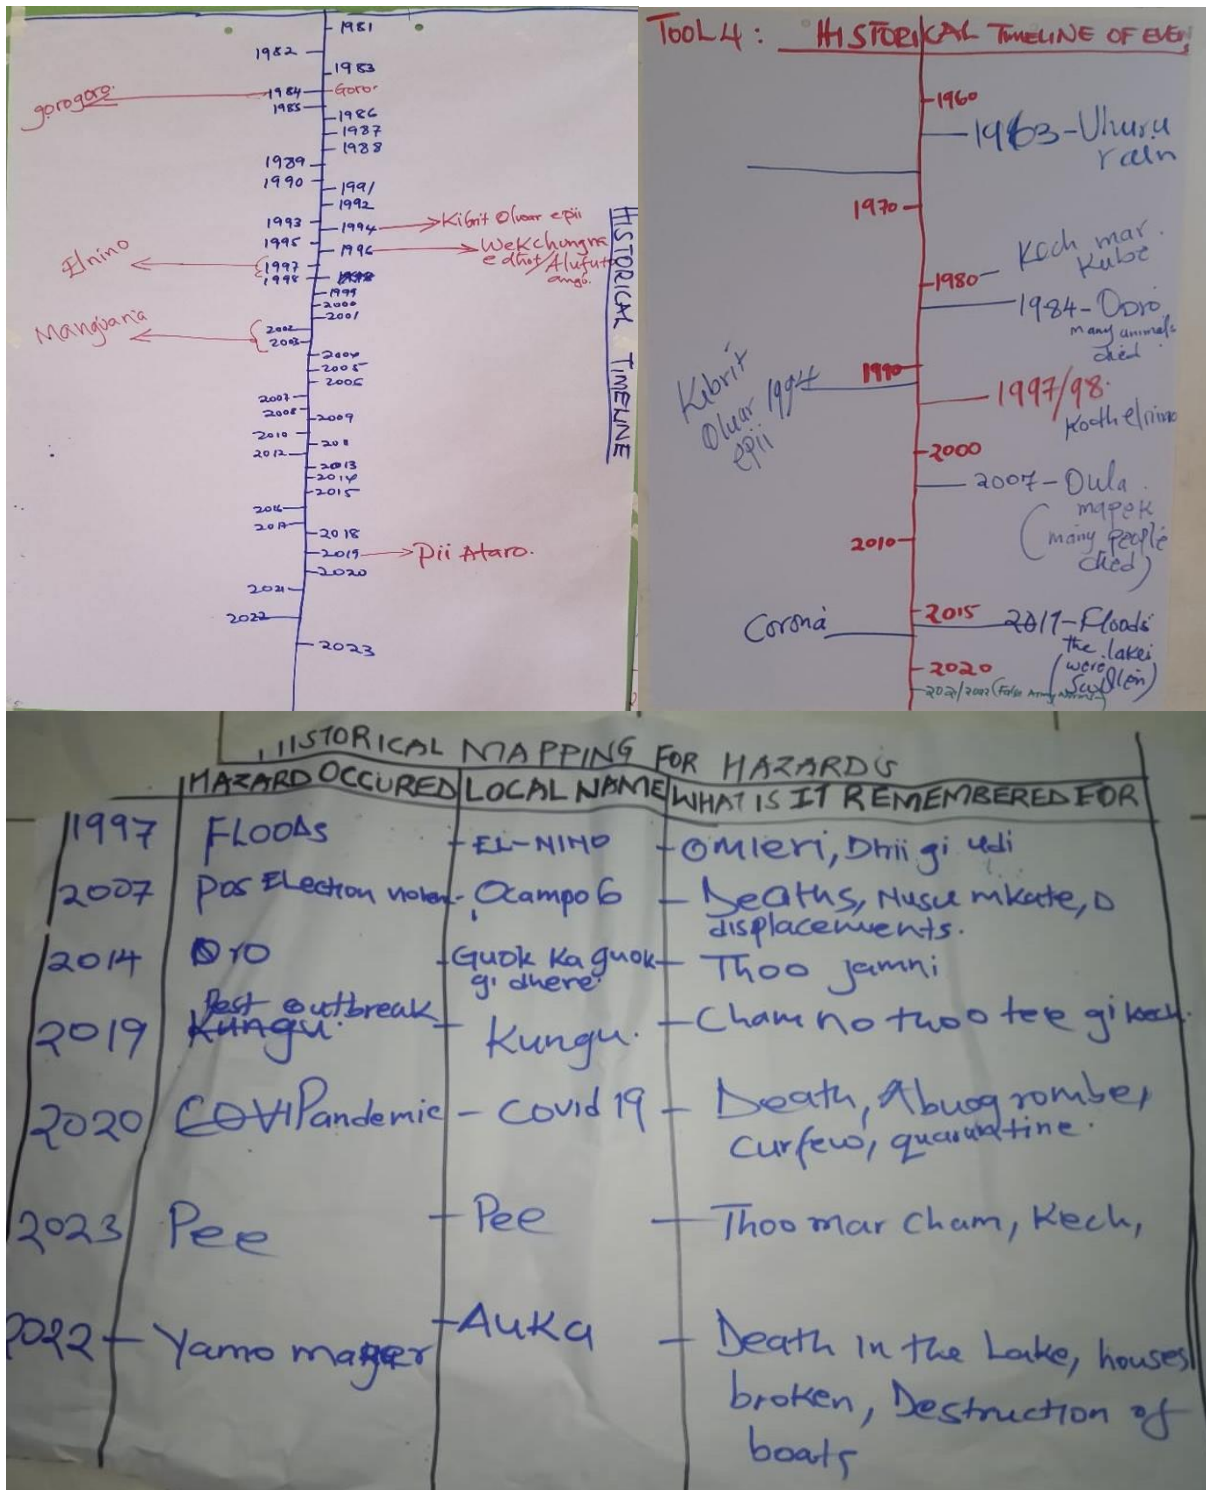 1981
1982
1983
gorogoro.
1984
Goro.
1985
1986
1987
1988
1989
1990
1991
1992
1993
1994
Kibrit Oluar epii
1995
1996
Wekchungna
edhot/Alufut
ango.
Elnino
1997
1998
1999
2000
2001
Manguania
2002
2003
2004
2005
2006
2007
2008
2009
2010
2011
2012
2013
2014
2015
2016
2017
2018
2019
Pii Ataro.
2020
2021
2022
2023
HISTORICAL TIMELINE
TOOL 4: HISTORIKAL TIMELINE OF EVEN
1960
1963-Uhuru
rain
1970
Koch mar.
Kube
1980
1984-Ooro
many animals
died
1990
Kibrit
Oluar 1994
epii
1997/98.
Koth elnino
2000
2007-Oula
mapek
(many people
died)
2010
2015
Corona
2019-Floods
the lakes
(were
Swollen)
2020
2021/2022 (
HISTORICAL MAPPING FOR HAZARDS
HAZARD OCCURED LOCAL NAME WHAT IS IT REMEMBERED FOR
1997 FLOODS - EL-NINO - Omieri, Dhii gi udi
2007 Pos Election - Ocampo 6 - Deaths, Nusu mkate, D
displacements.
2014 Oro - Guok Ka guok - Thoo jamni
gi dhere.
Pest outbreak
2019 Kungu. - Kungu. - Cham no thoo tee gi kech.
2020 COVI Pandemic - Covid 19 - Death, Abuog rombe,
curfew, quarantine.
2023 Pee - Pee - Thoo mar cham, Kech,
2022 - Yamo mager - AUKA - Death in the Lake, houses
broken, Destruction of
boats